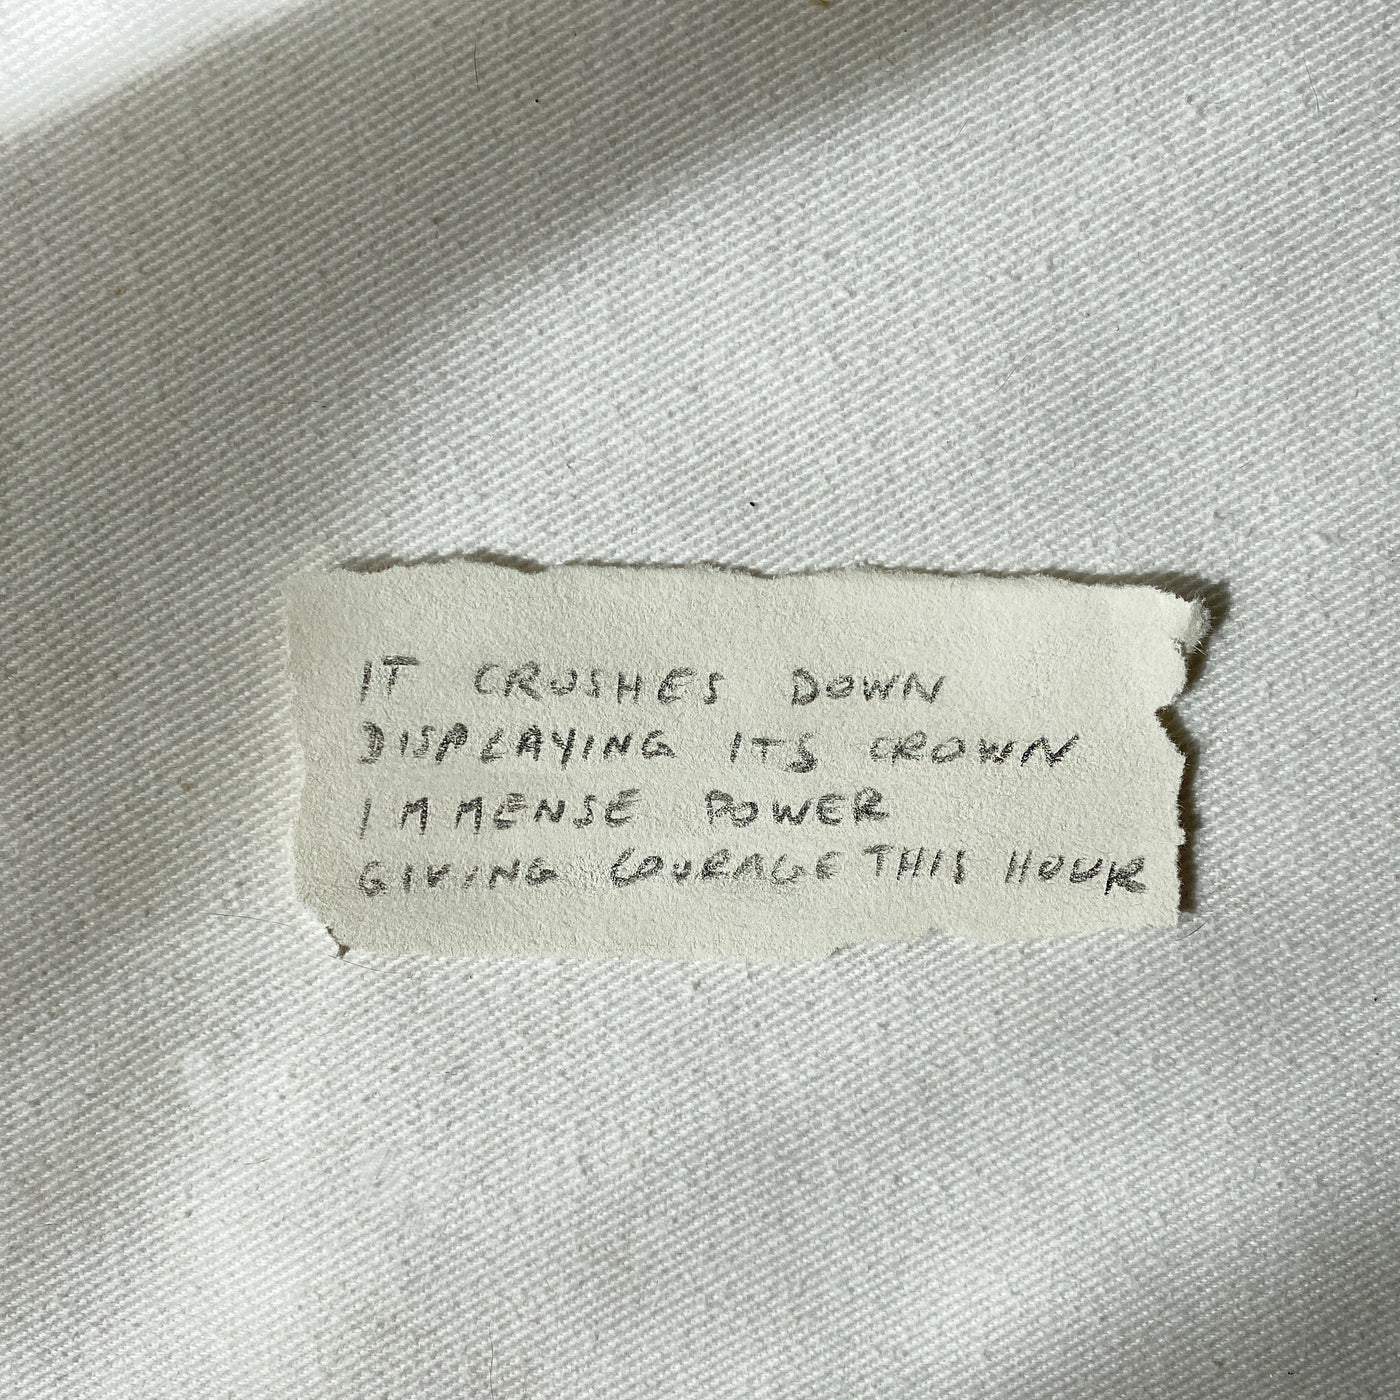 IT CRUSHES DOWN
DISPLAYING ITS CROWN
IMMENSE POWER
GIVING COURAGE THIS HOUR